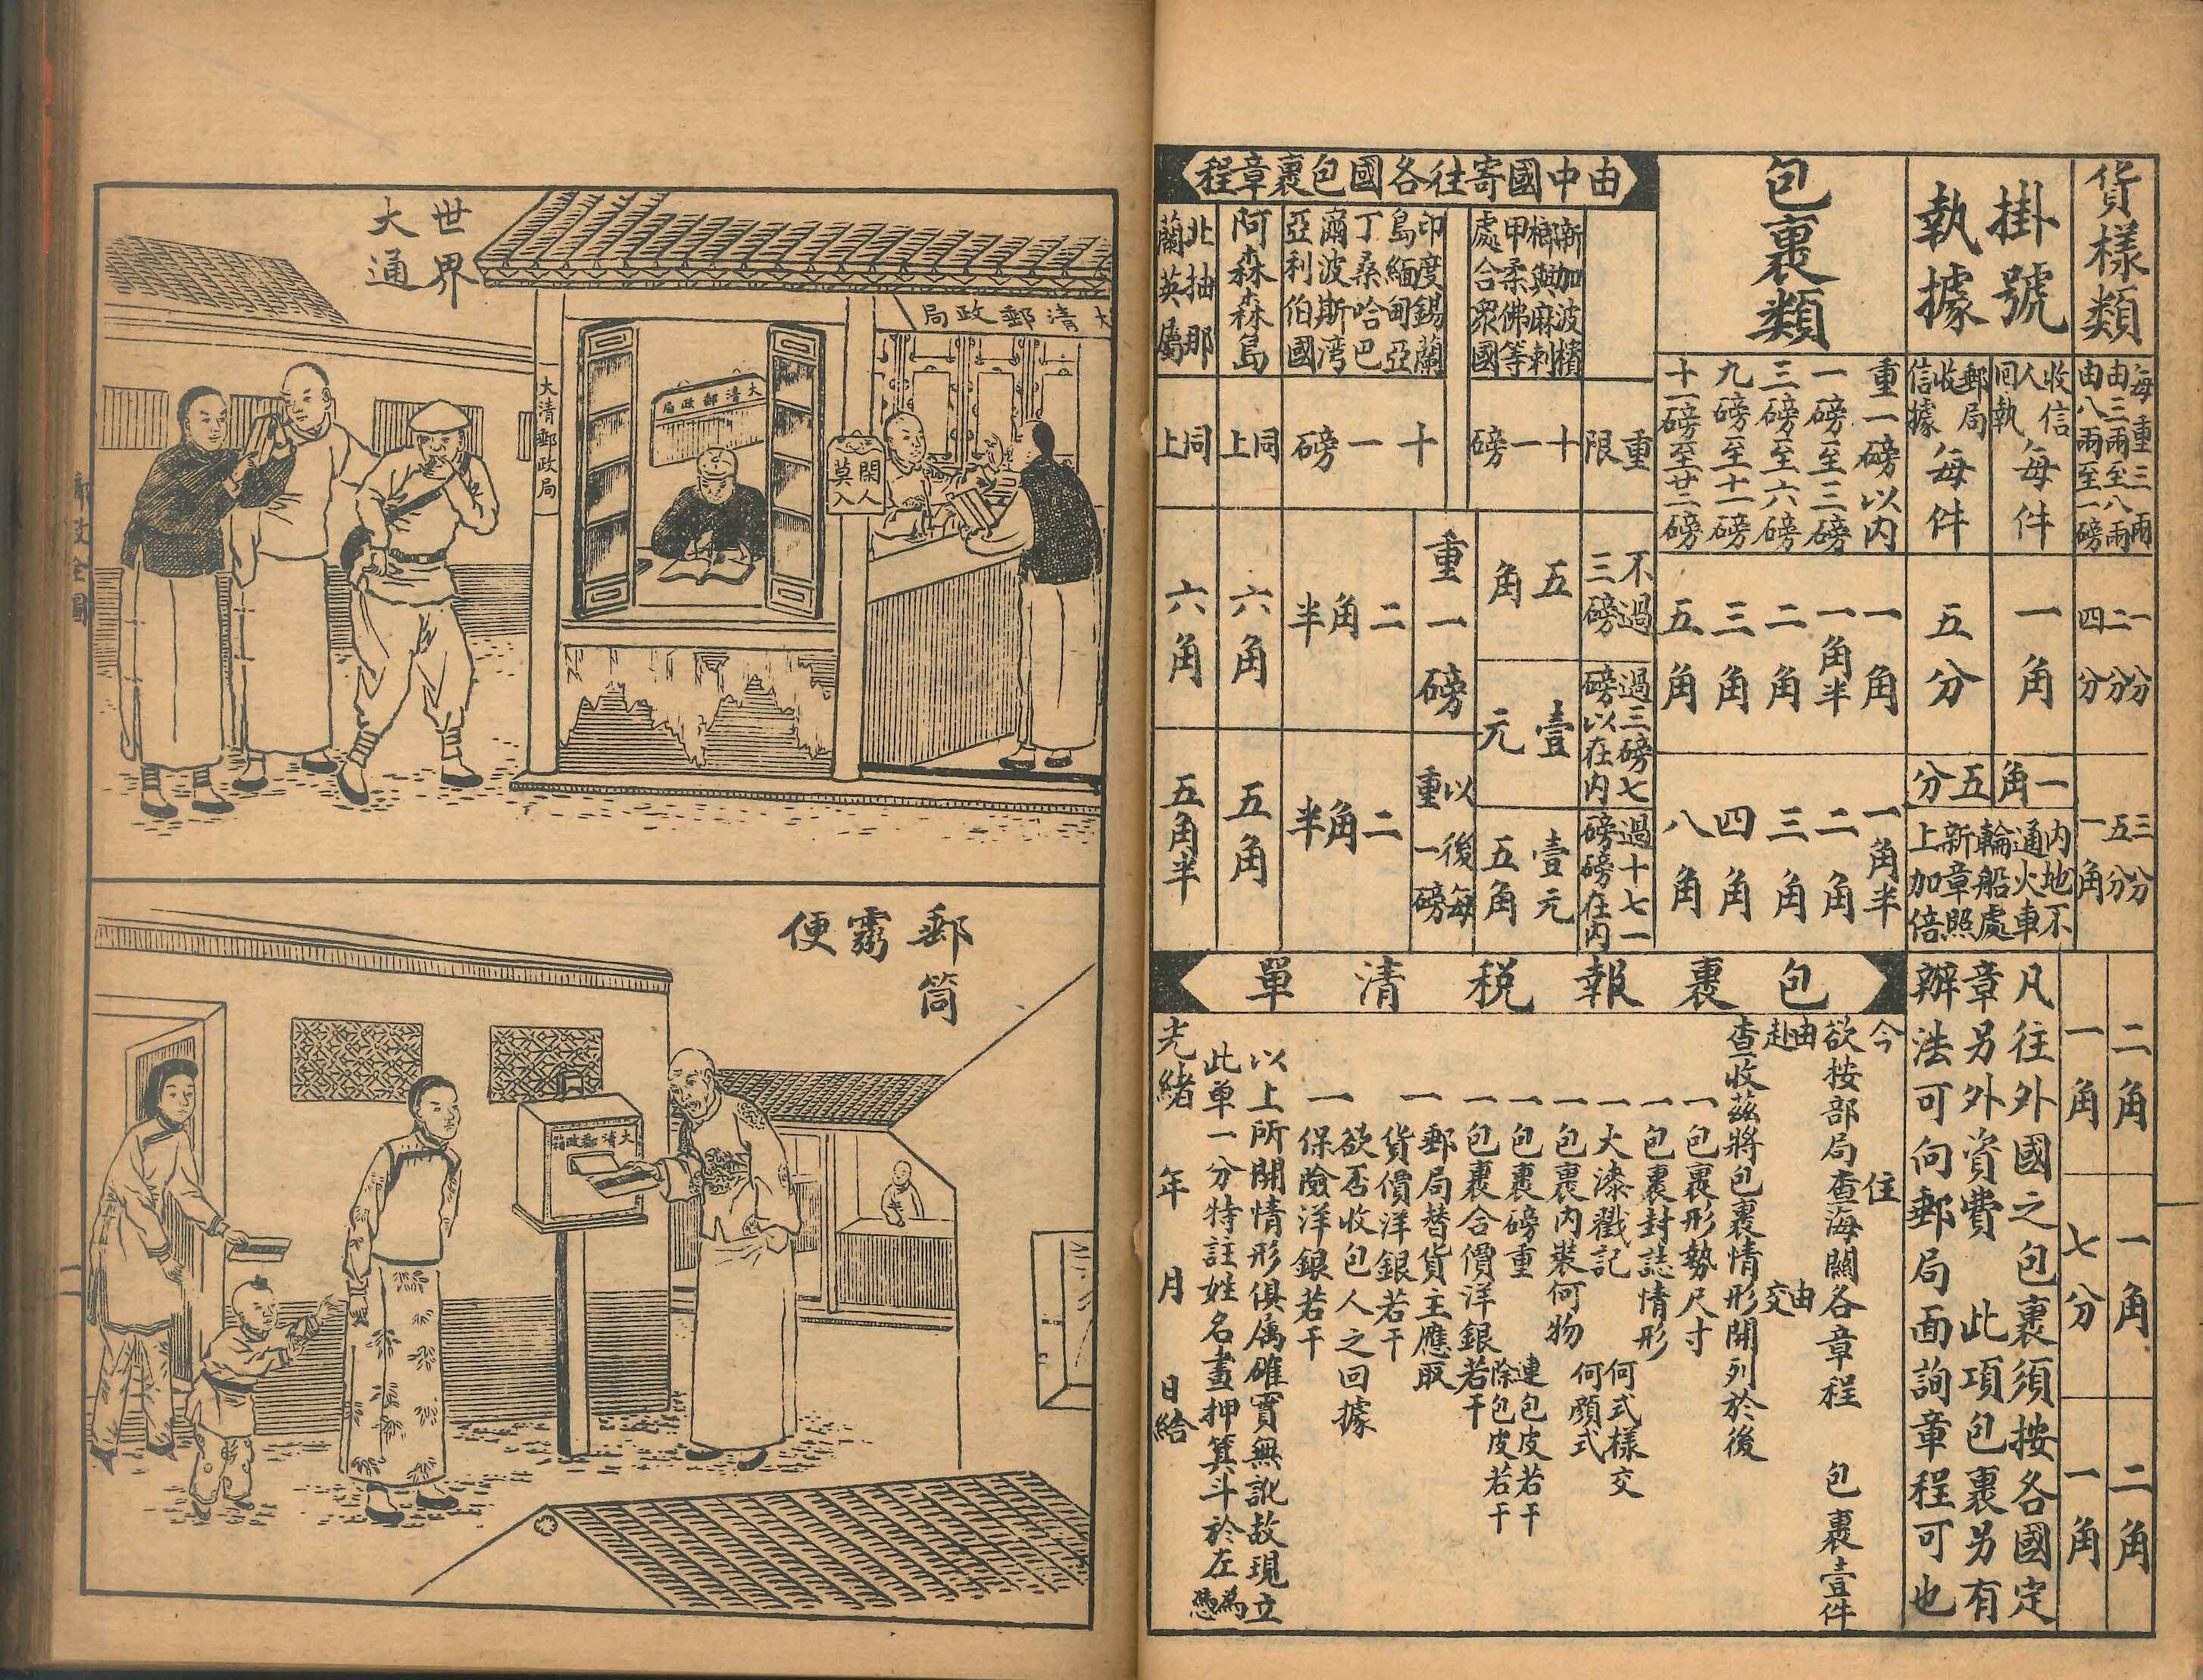 貨樣類
每重三兩
由三兩至八兩
由八兩至一磅
一分
二分
四分
三分
五分
一角
二角
一角
二角
一角
七分
一角
掛號
執據
收信
人
回執
每件
郵局
收
信據
每件
一角
五分
一角
五分
內地不
通火車
輪船處
新章照
上加倍
凡往外國之包裹須按各國定
章另外資費 此項包裹另有
辦法可向郵局面詢章程可也
包裹類
重一磅以內
一磅至三磅
三磅至六磅
九磅至十一磅
十一磅至廿二磅
一角
一角半
二角
三角
五角
一角半
二角
三角
四角
八角
由中國寄往各國包裹章程
重限
不過
三磅
過三磅七
磅以在內
過十七一
磅磅在內
新加波檳
榔與麻剌
甲柔佛等
處合眾國
十一磅
五角
壹元
壹元
五角
印度錫蘭
島緬甸亞
丁桑哈巴
爾波斯灣
亞利伯國
十一磅
重一磅
以後每
重一磅
二角半
二角半
阿森森島
同上
六角
五角
北抽那
蘭英屬
同上
六角
五角半
包裹報稅清單
今 住
欲按部局查海關各章程 包裹壹件
由 由
赴 交
查收茲將包裹情形開列於後
一包裹形勢尺寸
一包裹封誌情形
一火漆戳記 何式樣交
何顏式
一包裹內裝何物
一包裹磅重 連包皮若干
除包皮若干
一包裹合價洋銀若干
一郵局替貨主應取
貨價洋銀若干
一欲否收包人之回據
保險洋銀若干
以上所開情形俱屬確實無訛故現立
此單一分特註姓名畫押箕斗於左為憑
光緒 年 月 日給
世界
大通
大清郵政局
大清郵政局
大清郵政局
閑人
莫入
郵筒
霛便
大清郵政